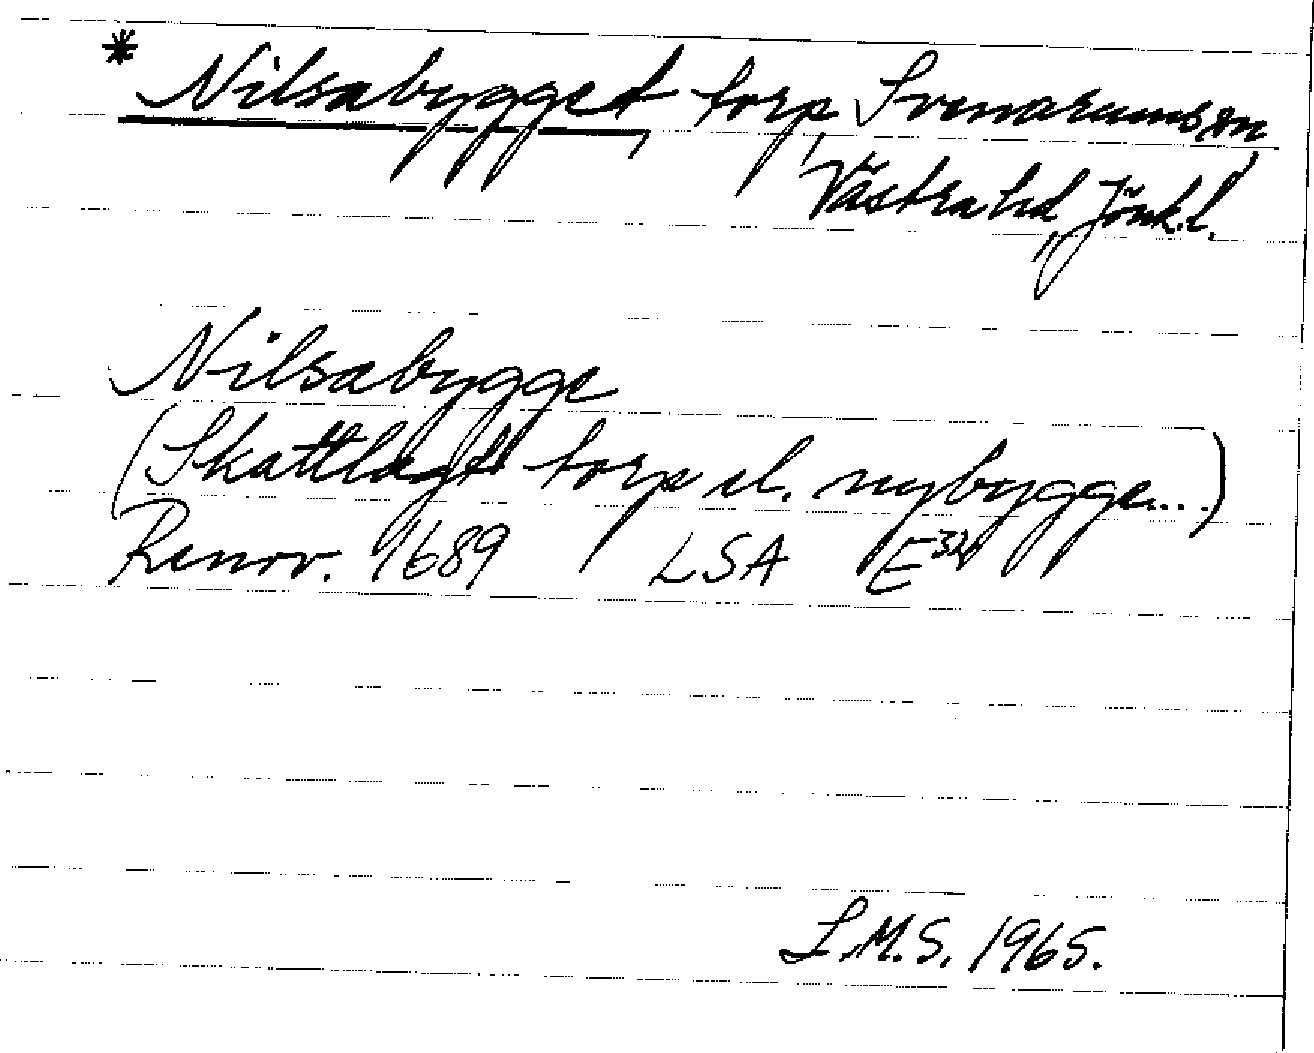 * Nilsabygget, torp, Svenarums sn,
Västra hd, Jönk.l.
Nilsabygge
(Skattlagt torp el. nybygge...)
Renov. 1689 LSA E32
L.M.S. 1965.